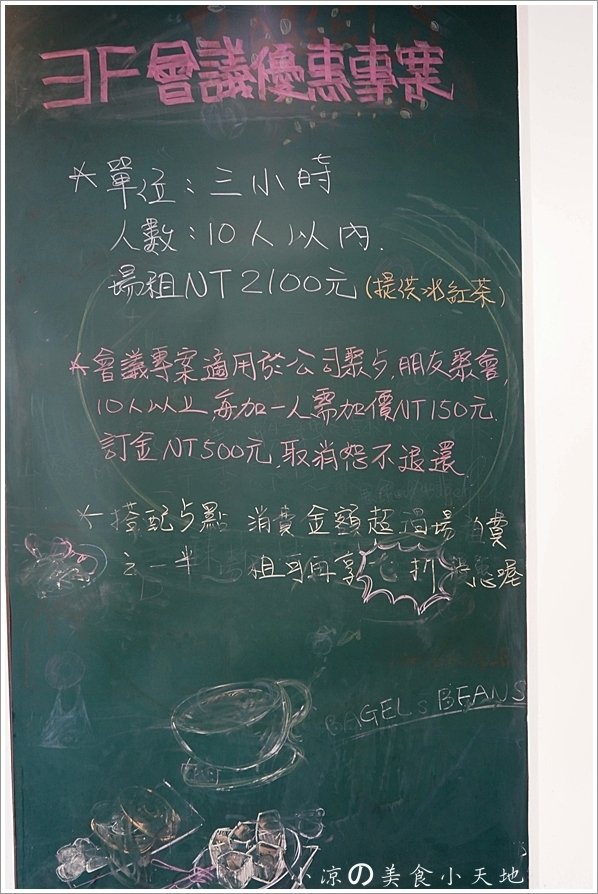 3F會議優惠專案
*單位:三小時
人數:10人以內.
場租NT2100元(提供冰紅茶)
*會議專案適用於公司聚点,朋友聚會,
10人以上,每加一人需加價NT150元.
訂金NT500元,取消恕不退還.
*搭配点點 消費金額超過場 費
之一半 租可再享 折 喔
BAGELS BEANS
小涼の美食小天地